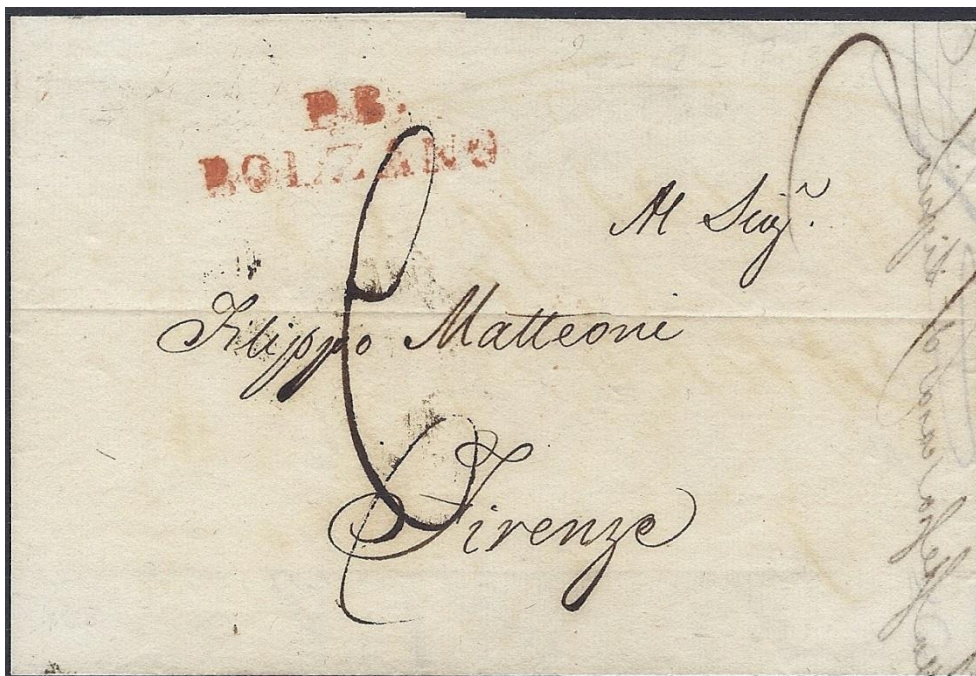 P.B.
BOLZANO
Al Sig.r
Filippo Matteoni
Firenze
6